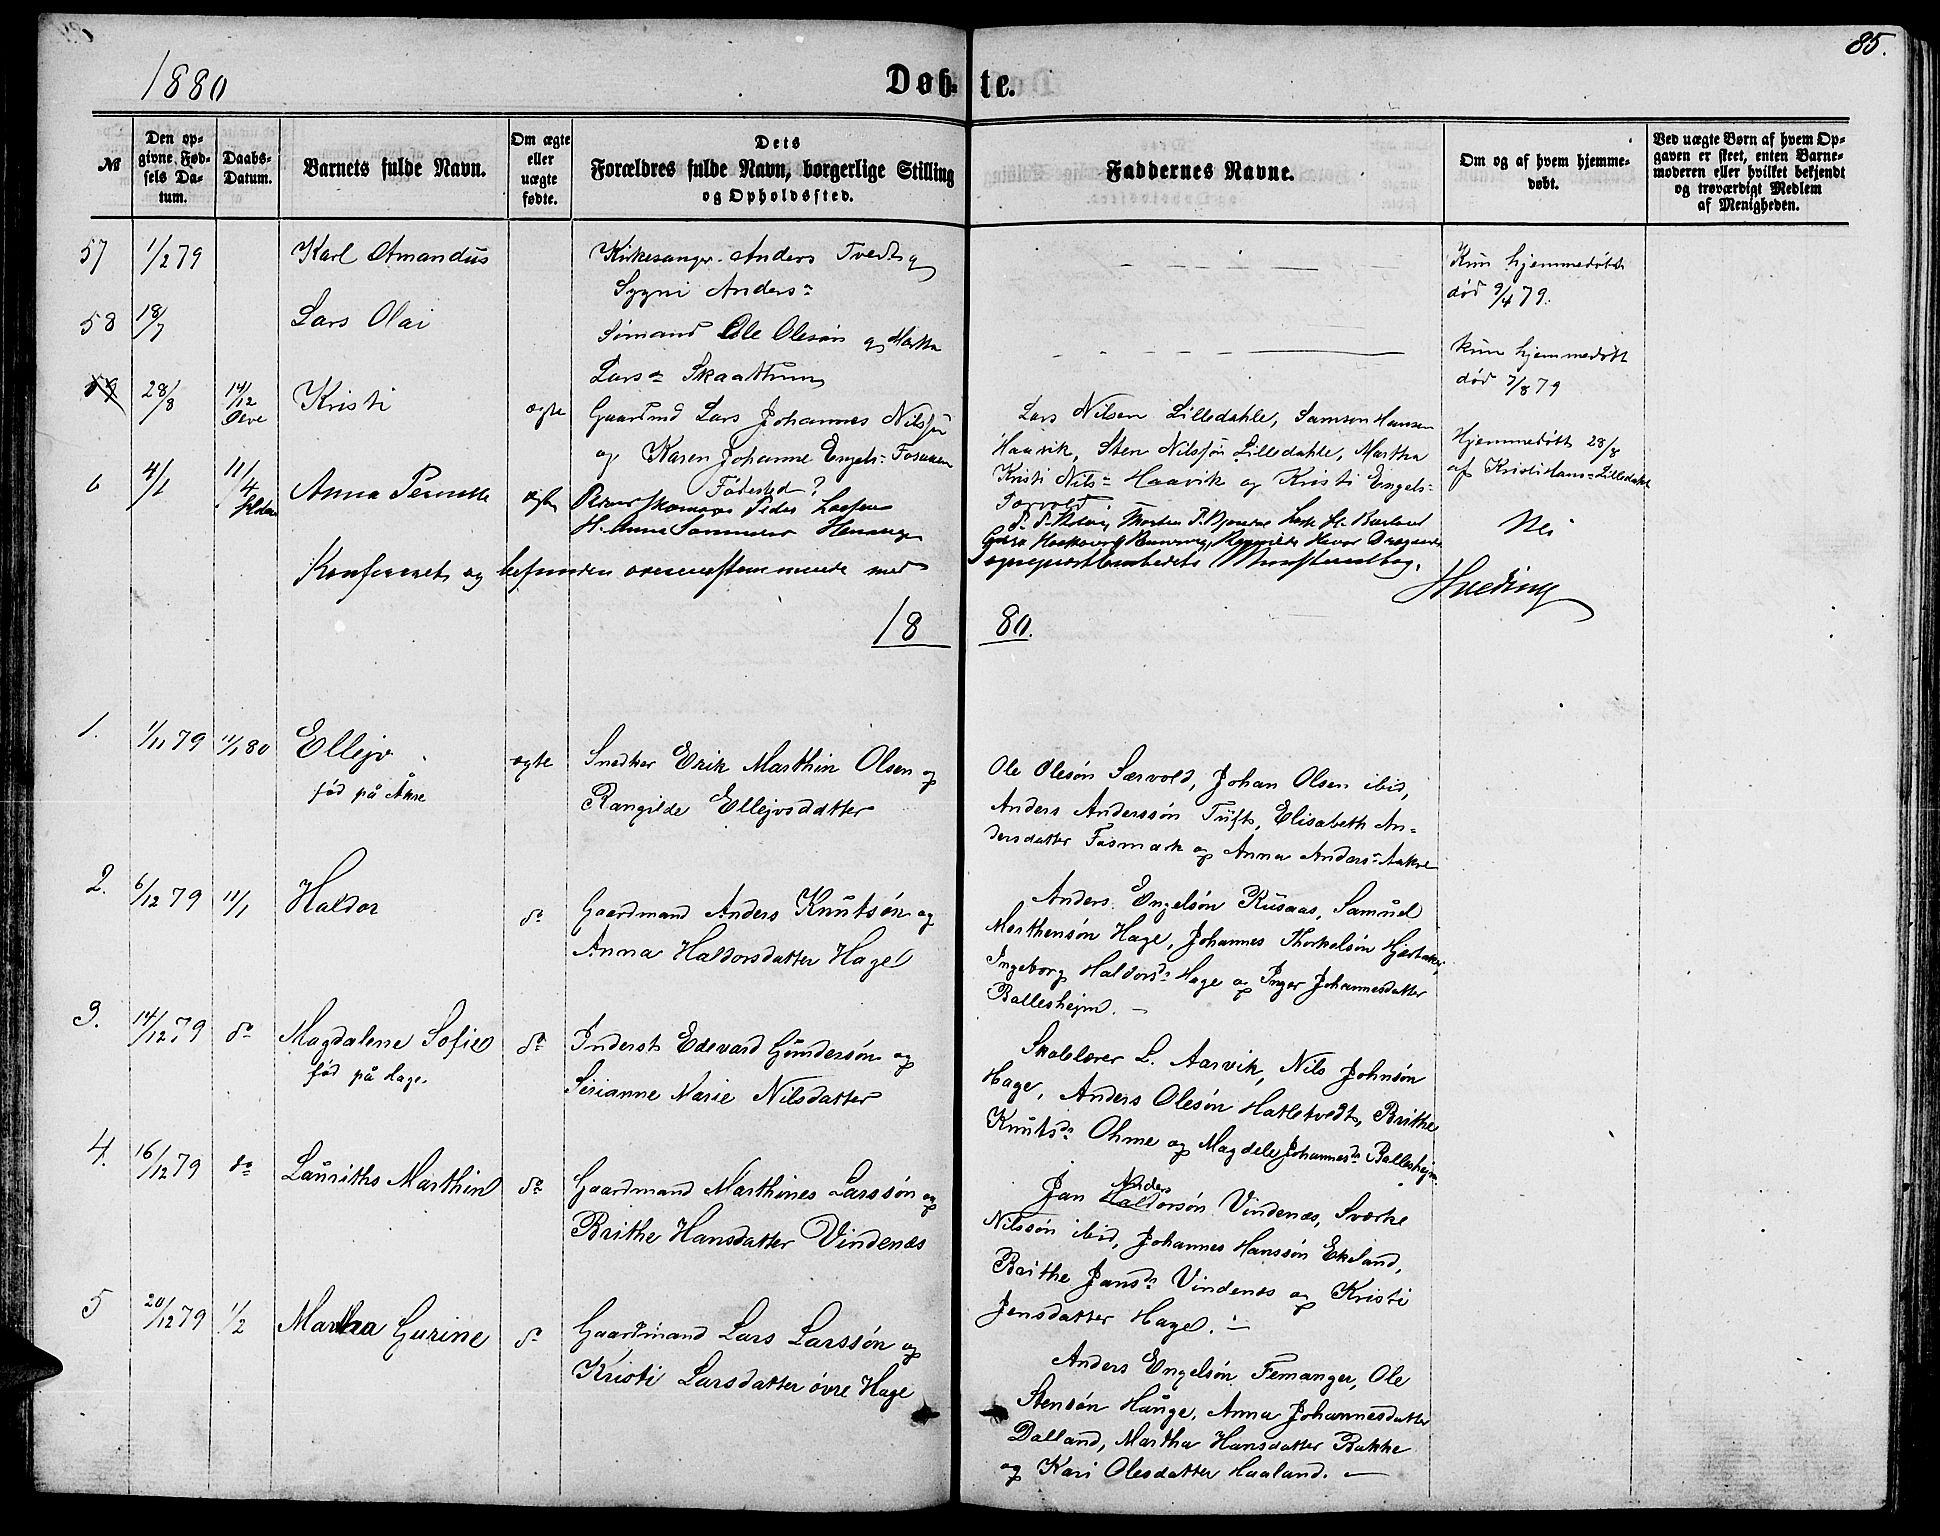 85.
1880
Døbte.
№
Den opgivne Fødsels Datum.
Daabs-Datum.
Barnets fulde Navn.
Om ægte eller uægte fødte.
Dets Forældres fulde Navn, borgerlige Stilling og Opholdssted.
Faddernes Navne.
Om og af hvem hjemmedøbt.
Ved uægte Børn af hvem Opgaven er skeet, enten Barnemoderen eller hvilket bekjendt og troværdigt Medlem af Menigheden.
57 1/2 79 Karl Amandus
Kirkesanger Anders Tvedt og
Sygni Anders
Kun hjemmedøbt
død 9/4 79.
58 18/7 Lars Olai
Sømand Ole Olesøn og Martha
Lars Skaathun
kun hjemmedøbt
død 7/8 79
59 28/8 14/12 Kristi ægte
Gaardmd Lars Johannes Nilssøn
og Karen Johanne Engels
Lars Nilsen Lilledahle, Samson Hansen
Haavik, Sten Nilssøn Lilledahle, Martha
Kristi Nils Haavik og Kristi Engels
Hjemmedøbt 28/8
af Kristi Hans Lilledahle
4/1 11/4 Anna Pernille ægte
Fødested?
Nei
Konfereret og befunden overensstemmende med Sogneprestembedets Ministerialbog.
1880.
1. 1/11 79 11/1 80 Ellejv ægte
fød på Åkre
Snedker Erik Marthin Olsen og
Rangilde Ellejvsdatter
Ole Olesøn Særvold, Johan Olsen ibid,
Anders Anderssøn Tuft, Elisabeth An-
dersdatter Fosmark og Anna Anders Aakre
2. 6/12 79 11/1 Haldor do
Gaardmand Anders Knutsøn og
Anna Haldorsdatter Hage
Anders Engelsøn Rusaas, Samuel
Morthensøn Hage, Johannes Thorkelsøn Hjartaker,
Ingeborg Haldorsd Hage og Inger Johannesdatter
Ballesheim.
3. 14/12 79 do Magdalene Sofie do
fød på Hage.
Inderst Edevard Gundersøn og
Sirianne Marie Nilsdatter
Skolelærer L. Aarvik, Nils Johnsøn
Hage, Anders Olesøn Hatletvedt, Brithe
Knutsd Ohme og Magdele Johannesd Ballesheim
4. 16/12 79 do Lauriths Marthin do
Gaardmand Marthines Larssøn og
Brithe Hansdatter Vindenæs
Anders
Jan Haldorsøn Vindenæs, Sværke
Nilssøn ibid, Johannes Hanssøn Ekeland,
Brithe Jansd Vindenæs og Kristi
Jensdatter Hage.
5 20/12 79 1/2 Martha Gurine do
Gaardmand Lars Larssøn og
Kristi Larsdatter øvre Hage
Anders Engelsøn Femanger, Ole
Stensøn Hauge, Anna Johannesdatter
Dalland, Martha Hansdatter Bakke
og Kari Olesdatter Haaland.